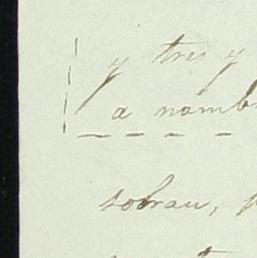 y tres y
a nomb
sobran,